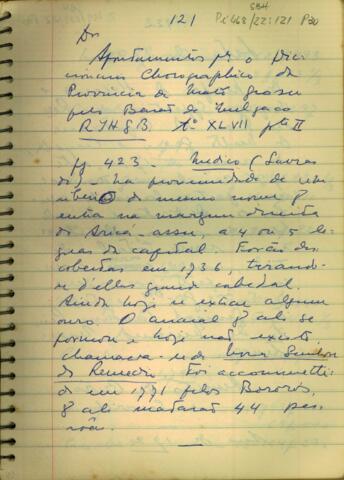 121
SBH
Pi 468 /22:121 P30
Do
Apontamentos pª o Dic
cionario Chorographico da
Provincia de Mato Grosso
pelo Barão de Melgaço
R I H G B tº XLVII pte II
pg. 423. Medico (Lavras
do) - na proximidade de um
ribeirão do mesmo nome q
entra na margem direita
do Aricá-assu, a 4 ou 5 le
guas da capital. Forão des
cobertas em 1736, tirando-
se d'ellas grande cabedal.
Ainda hoje se extrae algum
ouro. O arraial q ali se
formou e hoje não existe
chamava-se de Bom Senhor
dos Remedios. Foi accommetti
do em 1771 pelos Bororós,
q ali matarão 44 pes
sôas.